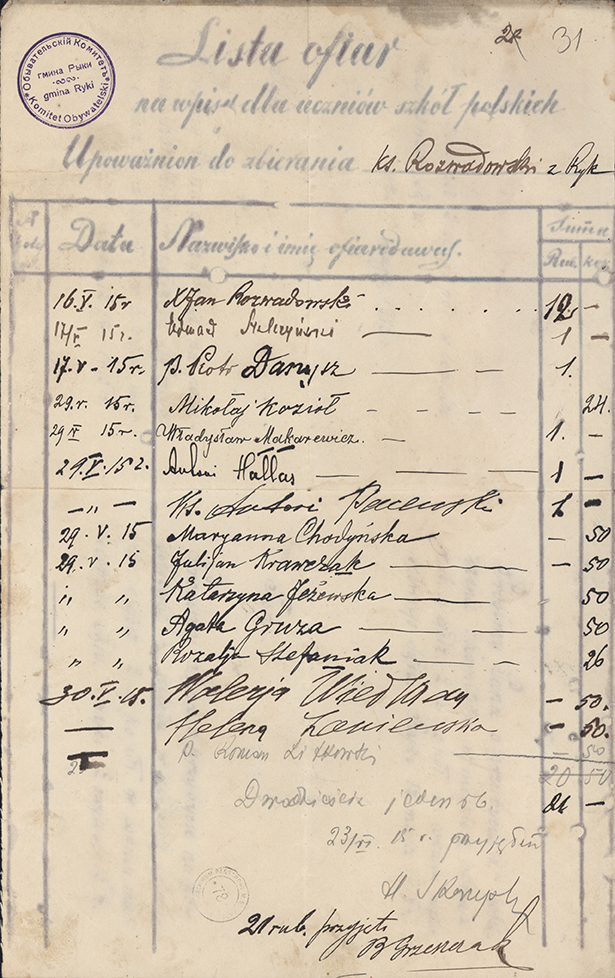 31
Обывательскій Комитетъ
гмина Рыки
gmina Ryki
Komitet Obywatelski
Lista ofiar
na wpisy dla uczniów szkół polskich
Upoważnion do zbierania ks. Rozwadowski z Ryk
Data Nazwisko i imię ofiarodawcy. Suma
Rub. kop.
16.V. 15r X Jan Rozwadowski 12 —
17/V 15r. 1 —
17.V - 15r. p. Piotr Danysz 1.
29.V. 15r. Mikołaj Kozioł 24.
29 V 15r. Władysław Makarewicz. 1. —
29.V.15 r. Antoni Hałłas 1 —
—„— Ks. Antoni 1 —
29.V.15 Maryanna Chodyńska — 50
29.V.15 Julijan Krawczak — 50
„ „ Katarzyna Jeżewska 50
„ „ Agata Gruza 50
„ „ Rozalja Stefaniak 26
30.V.15. Walerja — 50.
— Helena — 50.
p. Roman — 50
20 50
Dwadzieścia jeden 21 —
23/VI 15 r.
H.
21 rub. przyjęto